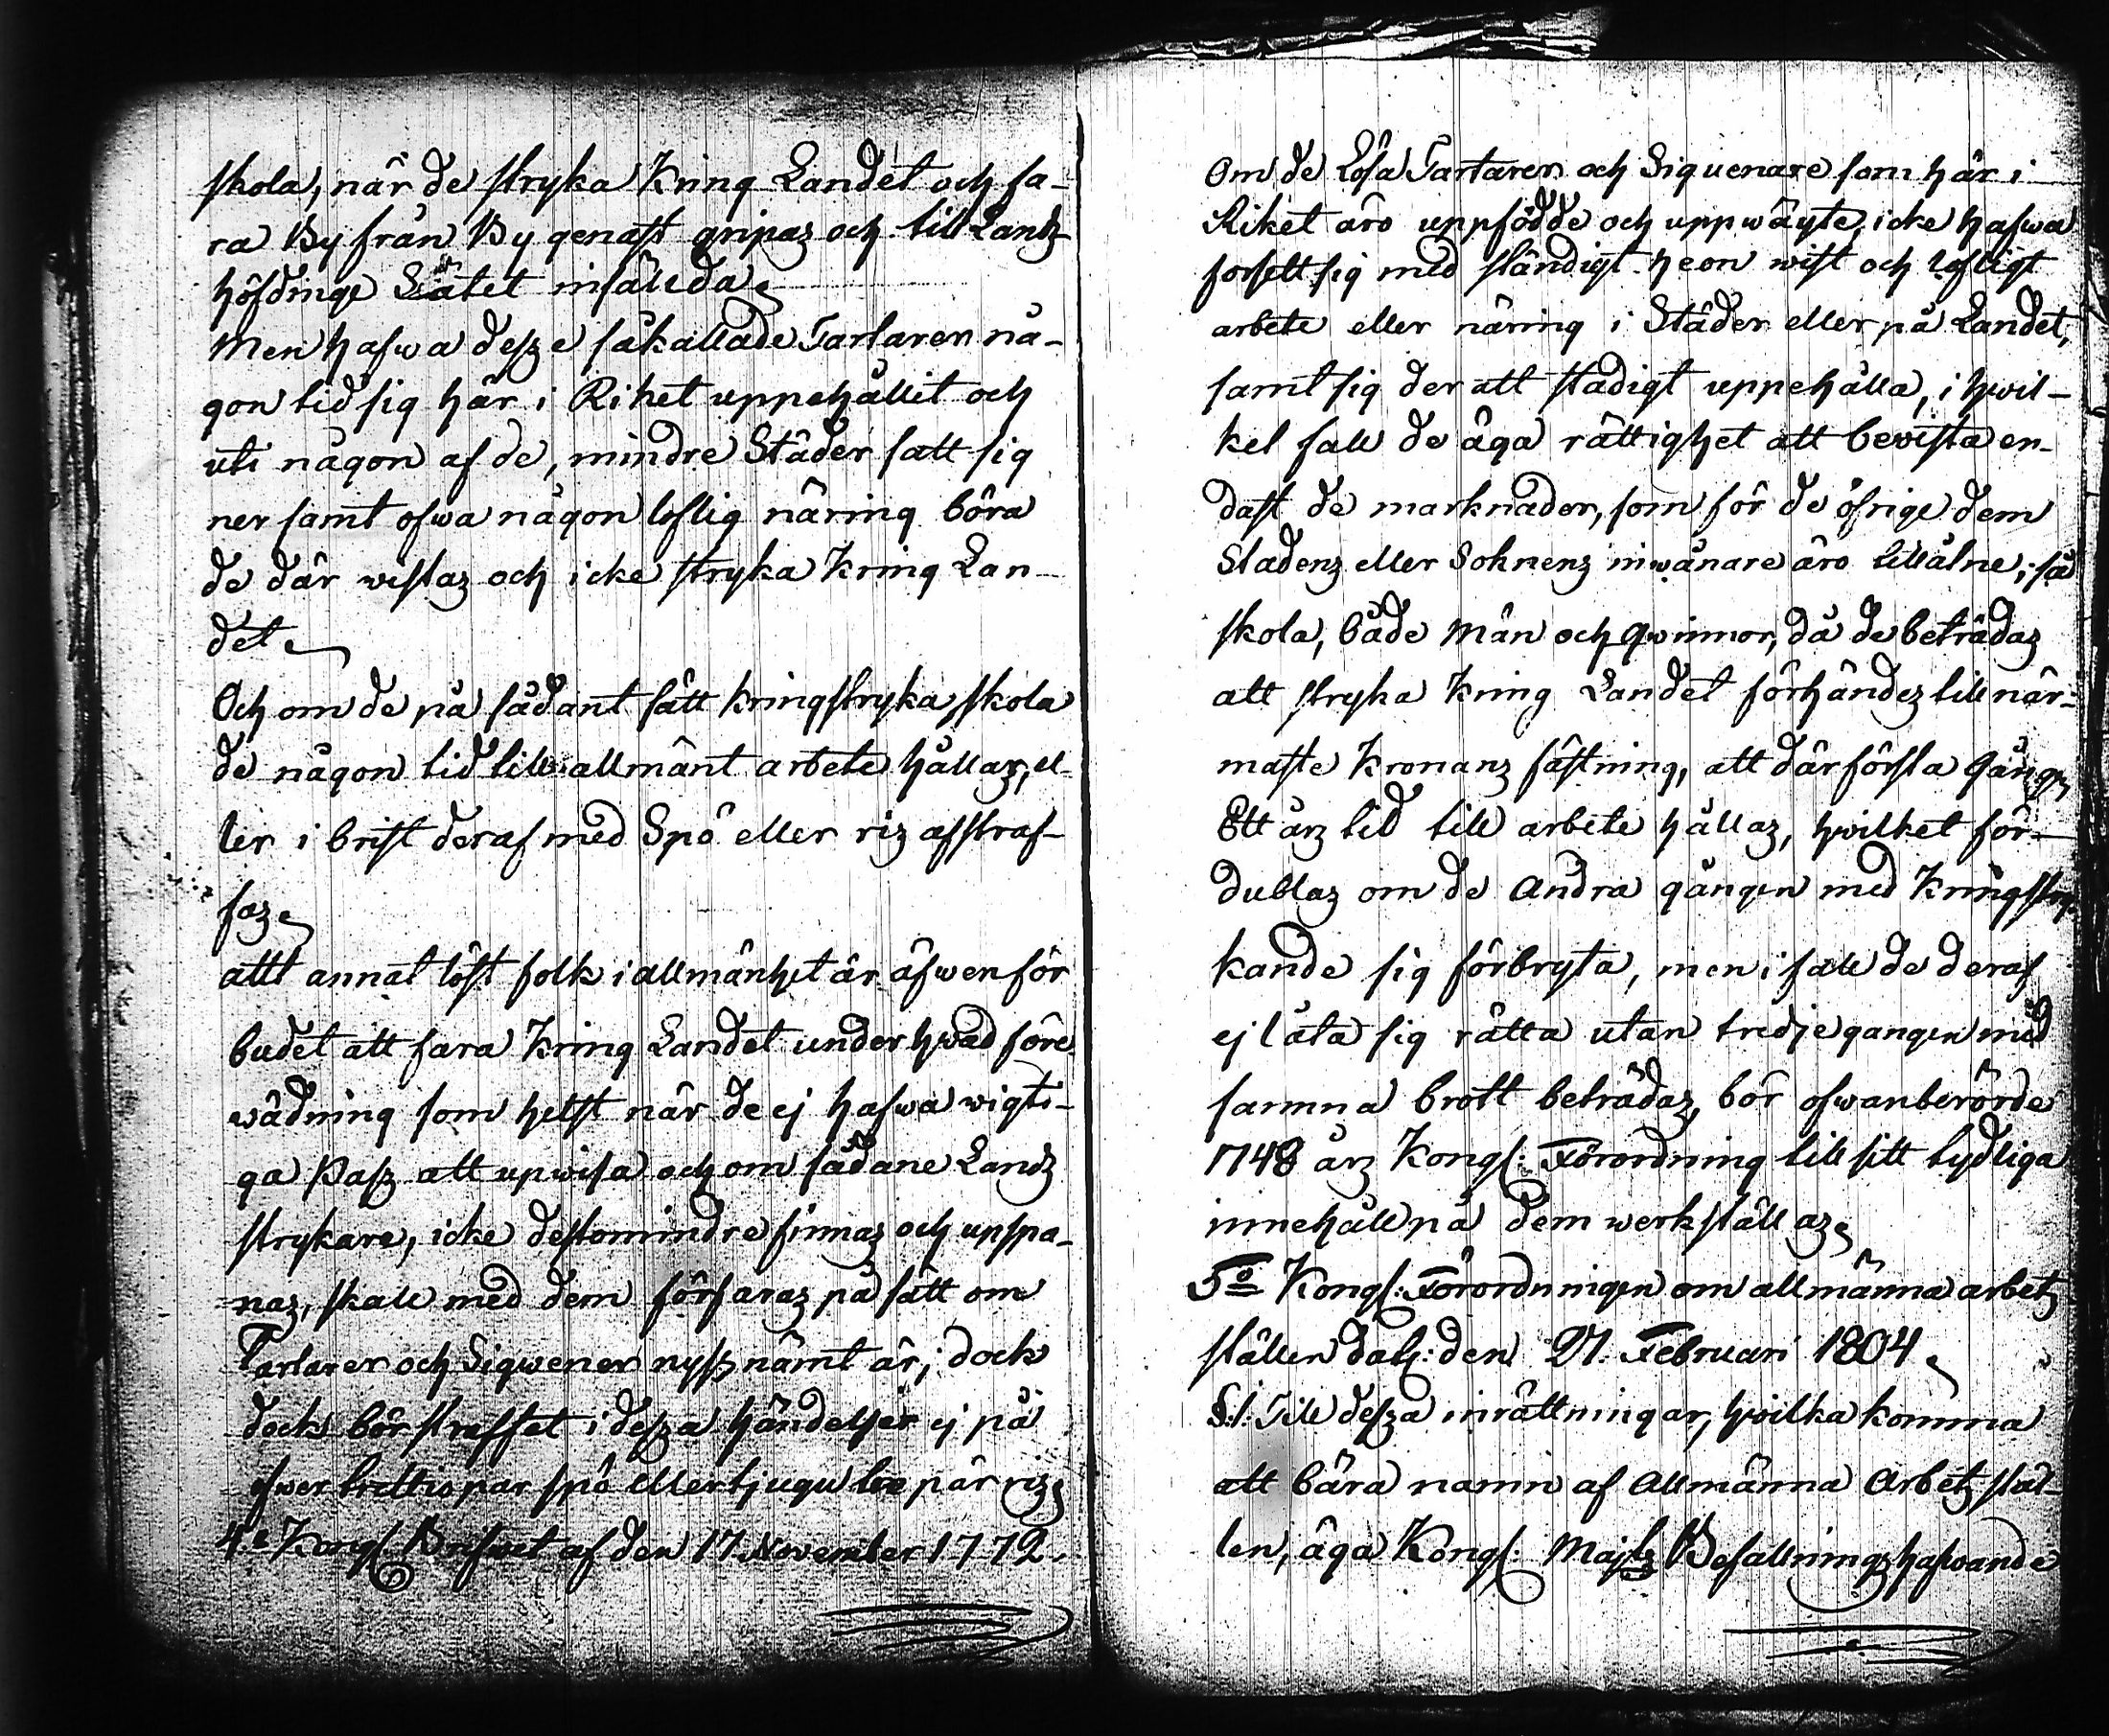 skola, när de stryka kring Landet och fa-
ra By från By genast gripas och till Lantz
höfdinge Sätet införda
Men hafwa desze såkallade Tartaren nå-
gon tid sig här i Riket uppehållit och
uti någon af de, mindre Städer satt sig
ner samt ofwa någon loflig näring böra
de där wistas och icke stryka kring Lan-
det
Och om de på sådant sätt kringstryka, skola
de någon tid till allmänt arbete hållas, el-
ler i brist deraf med Spö eller ris afstraf-
fas
allt annat löst folk i allmänhet är äfwen för
budet att fara kring Landet under hwad före
wädning som helst när de ej hafwa wigti-
ga Pasz att upwisa och om sådane Lands
strykare, icke destomindre finnas och upspa-
nas, skall med dem förfaras på sätt om
Tartarer och Sigwener nysz nämt är; dock
dock bör straffet i desza händelser ej på
öfwer trettio par spö eller tjugu tre par ris
4.e Kongl. Brefwet af den 17 November 1772.
Om de Lösa Tartarer och Siguenare som här i
Riket äro uppfödde och uppwäxte, icke hafwa
forsett sig med ständigt heon wist och lofligt
arbete eller näring i Städer eller på Landet,
samt sig der att stadigt uppehålla, i hwil-
kel fall de äga rättighet att bewista en-
dast de marknader, som för de öfrige dem
Stadens eller Soknens inwånare äro tillåtne; så
skola, både Män och qwinnor, då de beträdas
att stryka kring Landet förhändes till när-
maste Kronans fästning, att där första gången
Ett års tid till arbete hållas, hwilket för-
dublas om de andra gången med kringstry-
kande sig förbryta, men i fall de deraf
ej låta sig rätta utan tredje gangen med
samma brott beträdas, bör ofwanberörde
1748 års Kongl: Förordning till sitt tydliga
innehåll på dem werkställas
5o Kongl: Förordningen om allmänna arbets
ställen dat: den 27. Februari 1804
S:1. Till desza inrättningar, hwilka komma
att bära namn af Allmänna Arbets stäl-
len, äga Kongl: Majts Befallningshafwande